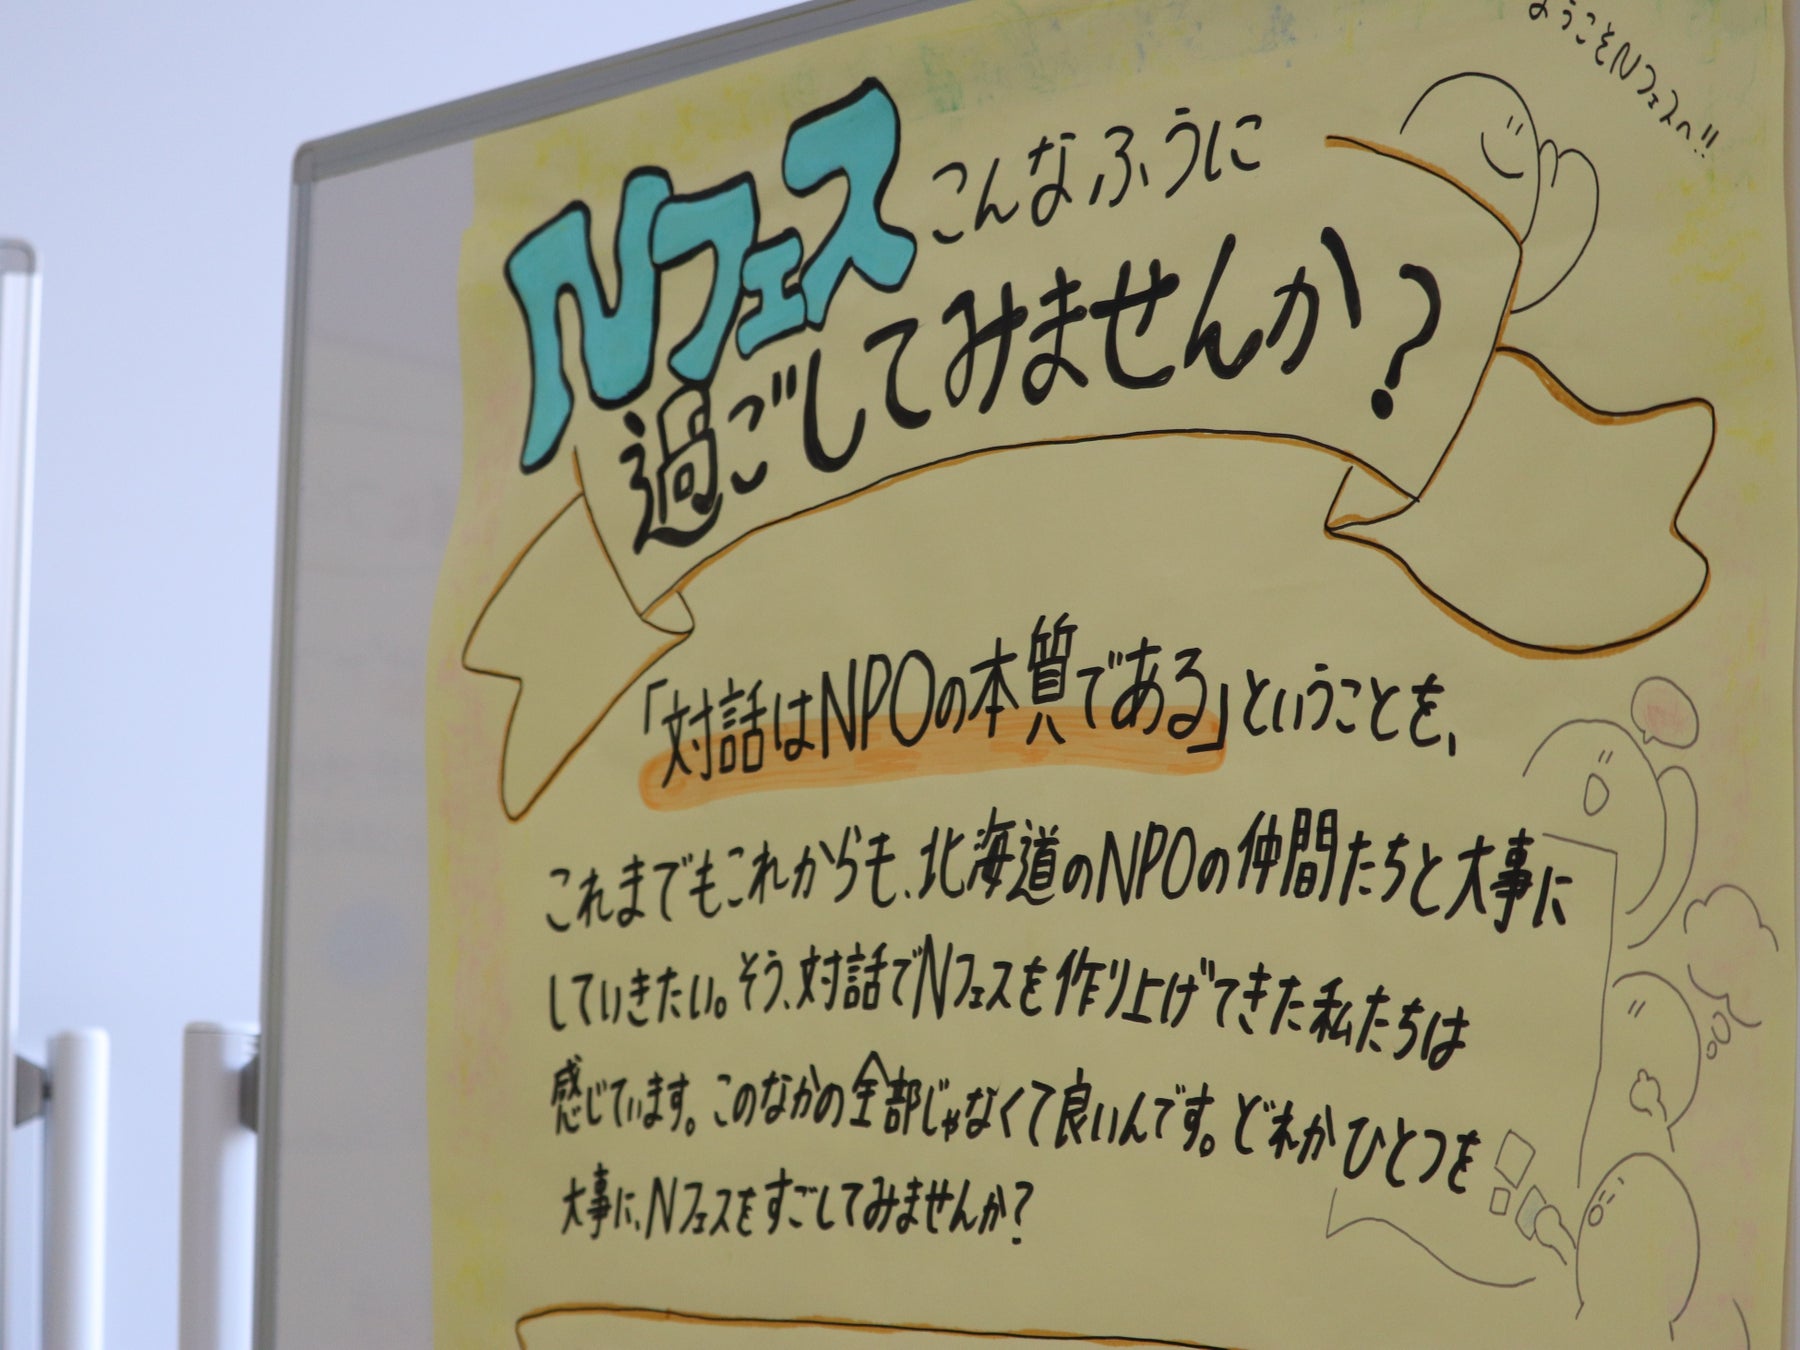 ようこそNフェスへ!!
Nフェス こんなふうに
過ごしてみませんか?
「対話はNPOの本質である」ということを、
これまでもこれからも、北海道のNPOの仲間たちと大事に
していきたい。そう、対話でNフェスを作り上げてきた私たちは
感じています。このなかの全部じゃなくて良いんです。どれかひとつを
大事に、Nフェスをすごしてみませんか?